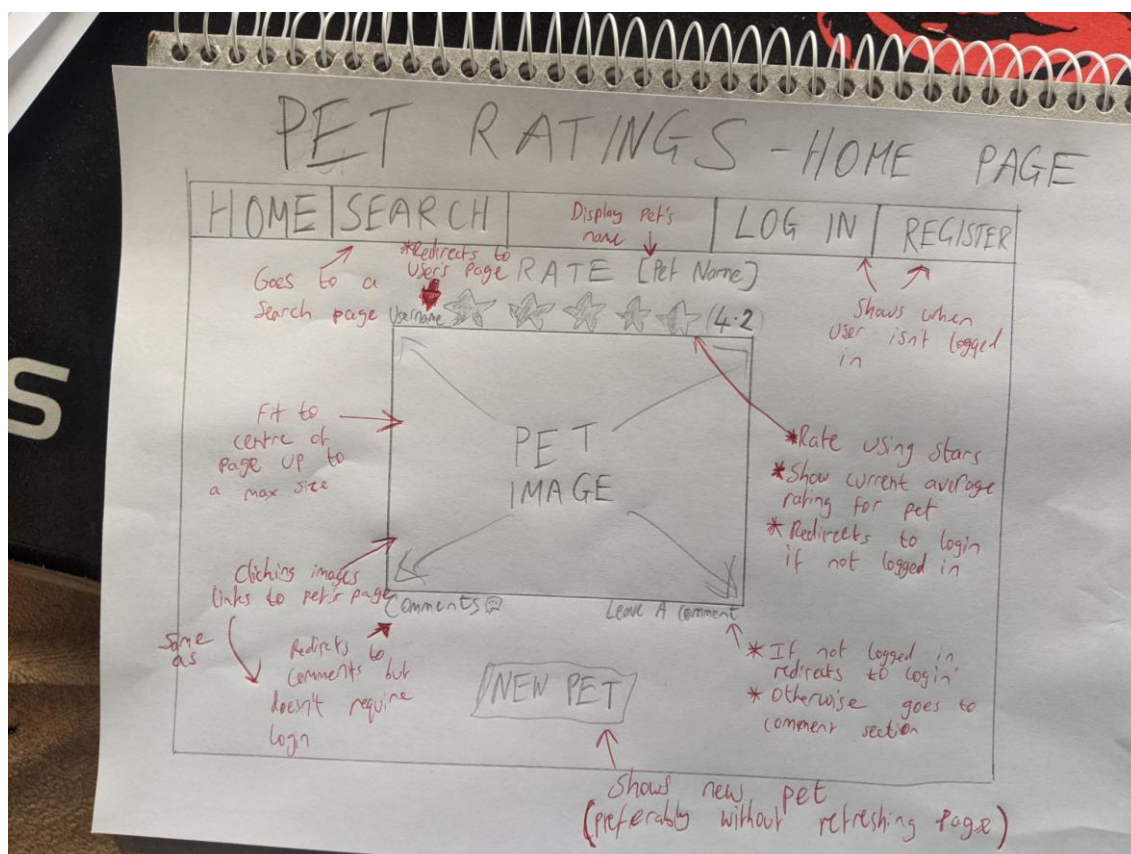 PET RATINGS - HOME PAGE
HOME SEARCH LOG IN REGISTER
Display Pet's
name
*Redirects to
User's page
RATE [Pet Name]
Goes to a
Search page
Username
(4.2)
Shows when
user isn't logged
in
Fit to
centre of
page up to
a max size
PET
IMAGE
*Rate using stars
*Show current average
rating for pet
*Redirects to login
if not logged in
Clicking images
links to pet's page
Same
as
Comments
Leave A Comment
Redirects to
comments but
doesn't require
login
*If not logged in
redirects to login
*Otherwise goes to
comment section
NEW PET
Shows new pet
(preferably without refreshing page)
S